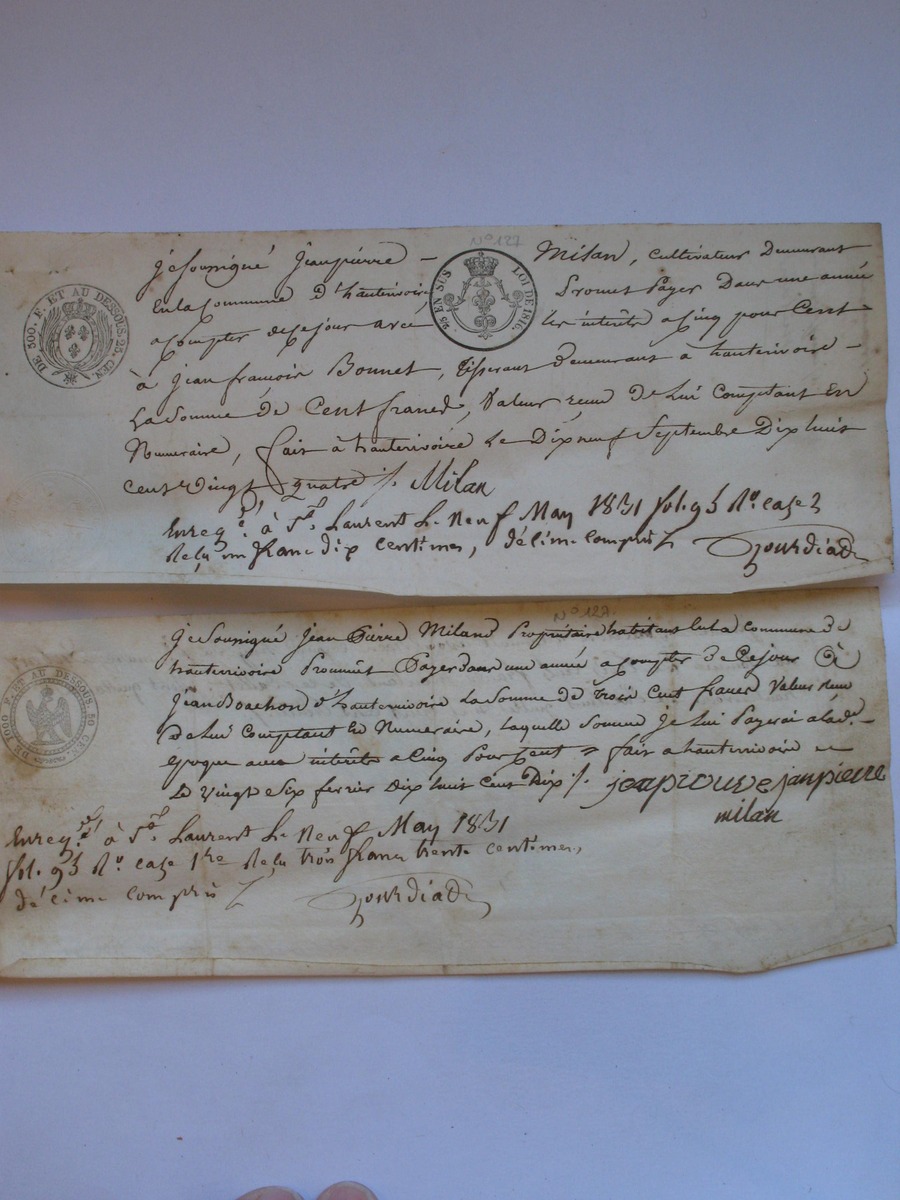 N° 127
je Sousigné Jeanpiérre – Milan, Cultivateur Demeurant
En la Commune D'hauterivoire Promet Payer Dans une année
a Compter de ce jour avec les intérêts a Cinq pour Cent
à Jean françois Bonnet, Tisserant demeurant à hauterivoire –
La Somme de Cent francs, Valeur reçue de Lui Comptant En
Numeraire, fait à hauterivoire Le Dix neuf Septembre Dix huit
Cent Vingt quatre /. Milan
DE 500. F. ET AU DESSOUS 25. CEN.
2/5 EN SUS LOI DE 1816.
Enreg.é à S.t Laurent Le Neuf May 1831 fol. 93 R.o Case 2
Reçu un franc dix Centimes, décime Compris
Gourdiad
N° 127.
Je Sousigné Jean Piérre Miland Propriétaire habitant En La Commune de
hauterivoire Promêt Payer dans une année a Compter De Ce jour à
Jean Boachon d'hauterivoire La Somme de trois Cent francs Valeur reçue
De Lui Comptant En Numeraire, laquelle Somme je lui Payerai a ladᵉ. –
epoque avec intérêts a Cinq Pour Cent = fait a hauterivoire le
Le Vingt e Six fevrier Dix huit Cent Dix /. jeaprouve janpierre
milan
DE 1000 F. ET AU DESSOUS. 50 CEN.
Enreg.é à S.t Laurent Le Neuf May 1831
fol. 93 R.o Case 1re Reçu trois francs trente Centimes,
décime Compris
Gourdiad